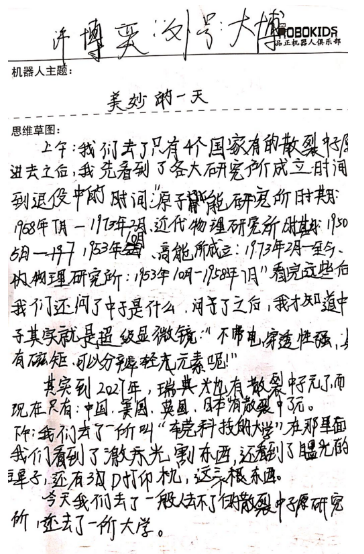 许博奕:外号:大博
ROBOKIDS
品正机器人俱乐部
机器人主题:
美妙的一天
思维草图:
上午:我们去了只有4个国家有的散裂中子源
进去之后,我先看到了各大研究所成立时间
到退役中的时间:“原子能研究所时期:
1958年7月—1973年2月、近代物理研究所时期:1950
5月—1953年10月、高能所成立:1973年2月—至今、
物理研究所:1953年10月—1958年7月”看完这些后
我们还问了中子是什么,问了之后,我才知道中
子其实就是超级显微镜:“不带电,穿透性强,具
有磁矩,可以分辨轻元素呢!”
其实到2027年,瑞典也有散裂中子了,而
现在只有:中国、美国、英国、日本有散裂中子。
下午:我们去了一所叫“科技的大学”在那里面
我们看到了激光割东西,还看到了
还有3D打印机,这三根东西。
今天我们去了一般人去不了的散裂中子源研究
所,还去了一所大学。